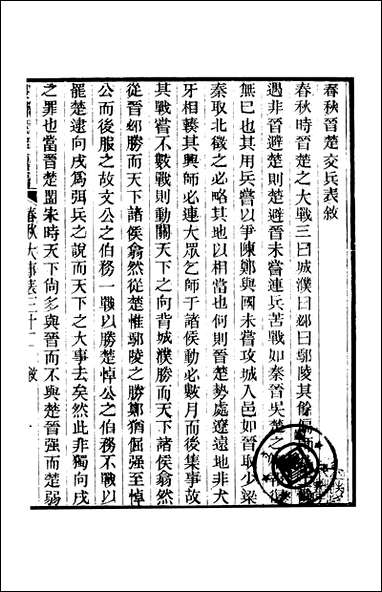 春秋晉楚交兵表敘
春秋時晉楚之大戰三曰城濮曰邲曰鄢陵其餘偏
遇非晉避楚則楚避晉未嘗連兵苦戰如秦晉吳楚之
無已也其用兵嘗以爭陳鄭與國未嘗攻城入邑如晉取少梁
秦取北徵之必略其地以相當也何則晉楚勢處遼遠地非犬
牙相輳其興師必連大眾乞師于諸侯動必數月而後集事故
其戰嘗不數戰則動關天下之向背城濮勝而天下諸侯翕然
從晉邲勝而天下諸侯翕然從楚惟鄢陵之勝鄭猶倔强至悼
公而後服之故文公之伯務一戰以勝楚悼公之伯務不戰以
罷楚逮向戌爲弭兵之說而天下之大事去矣然此非獨向戌
之罪也當晉楚盟宋時天下尚多與晉而不與楚晉强而楚弱
春秋大事表三十二 敘 一